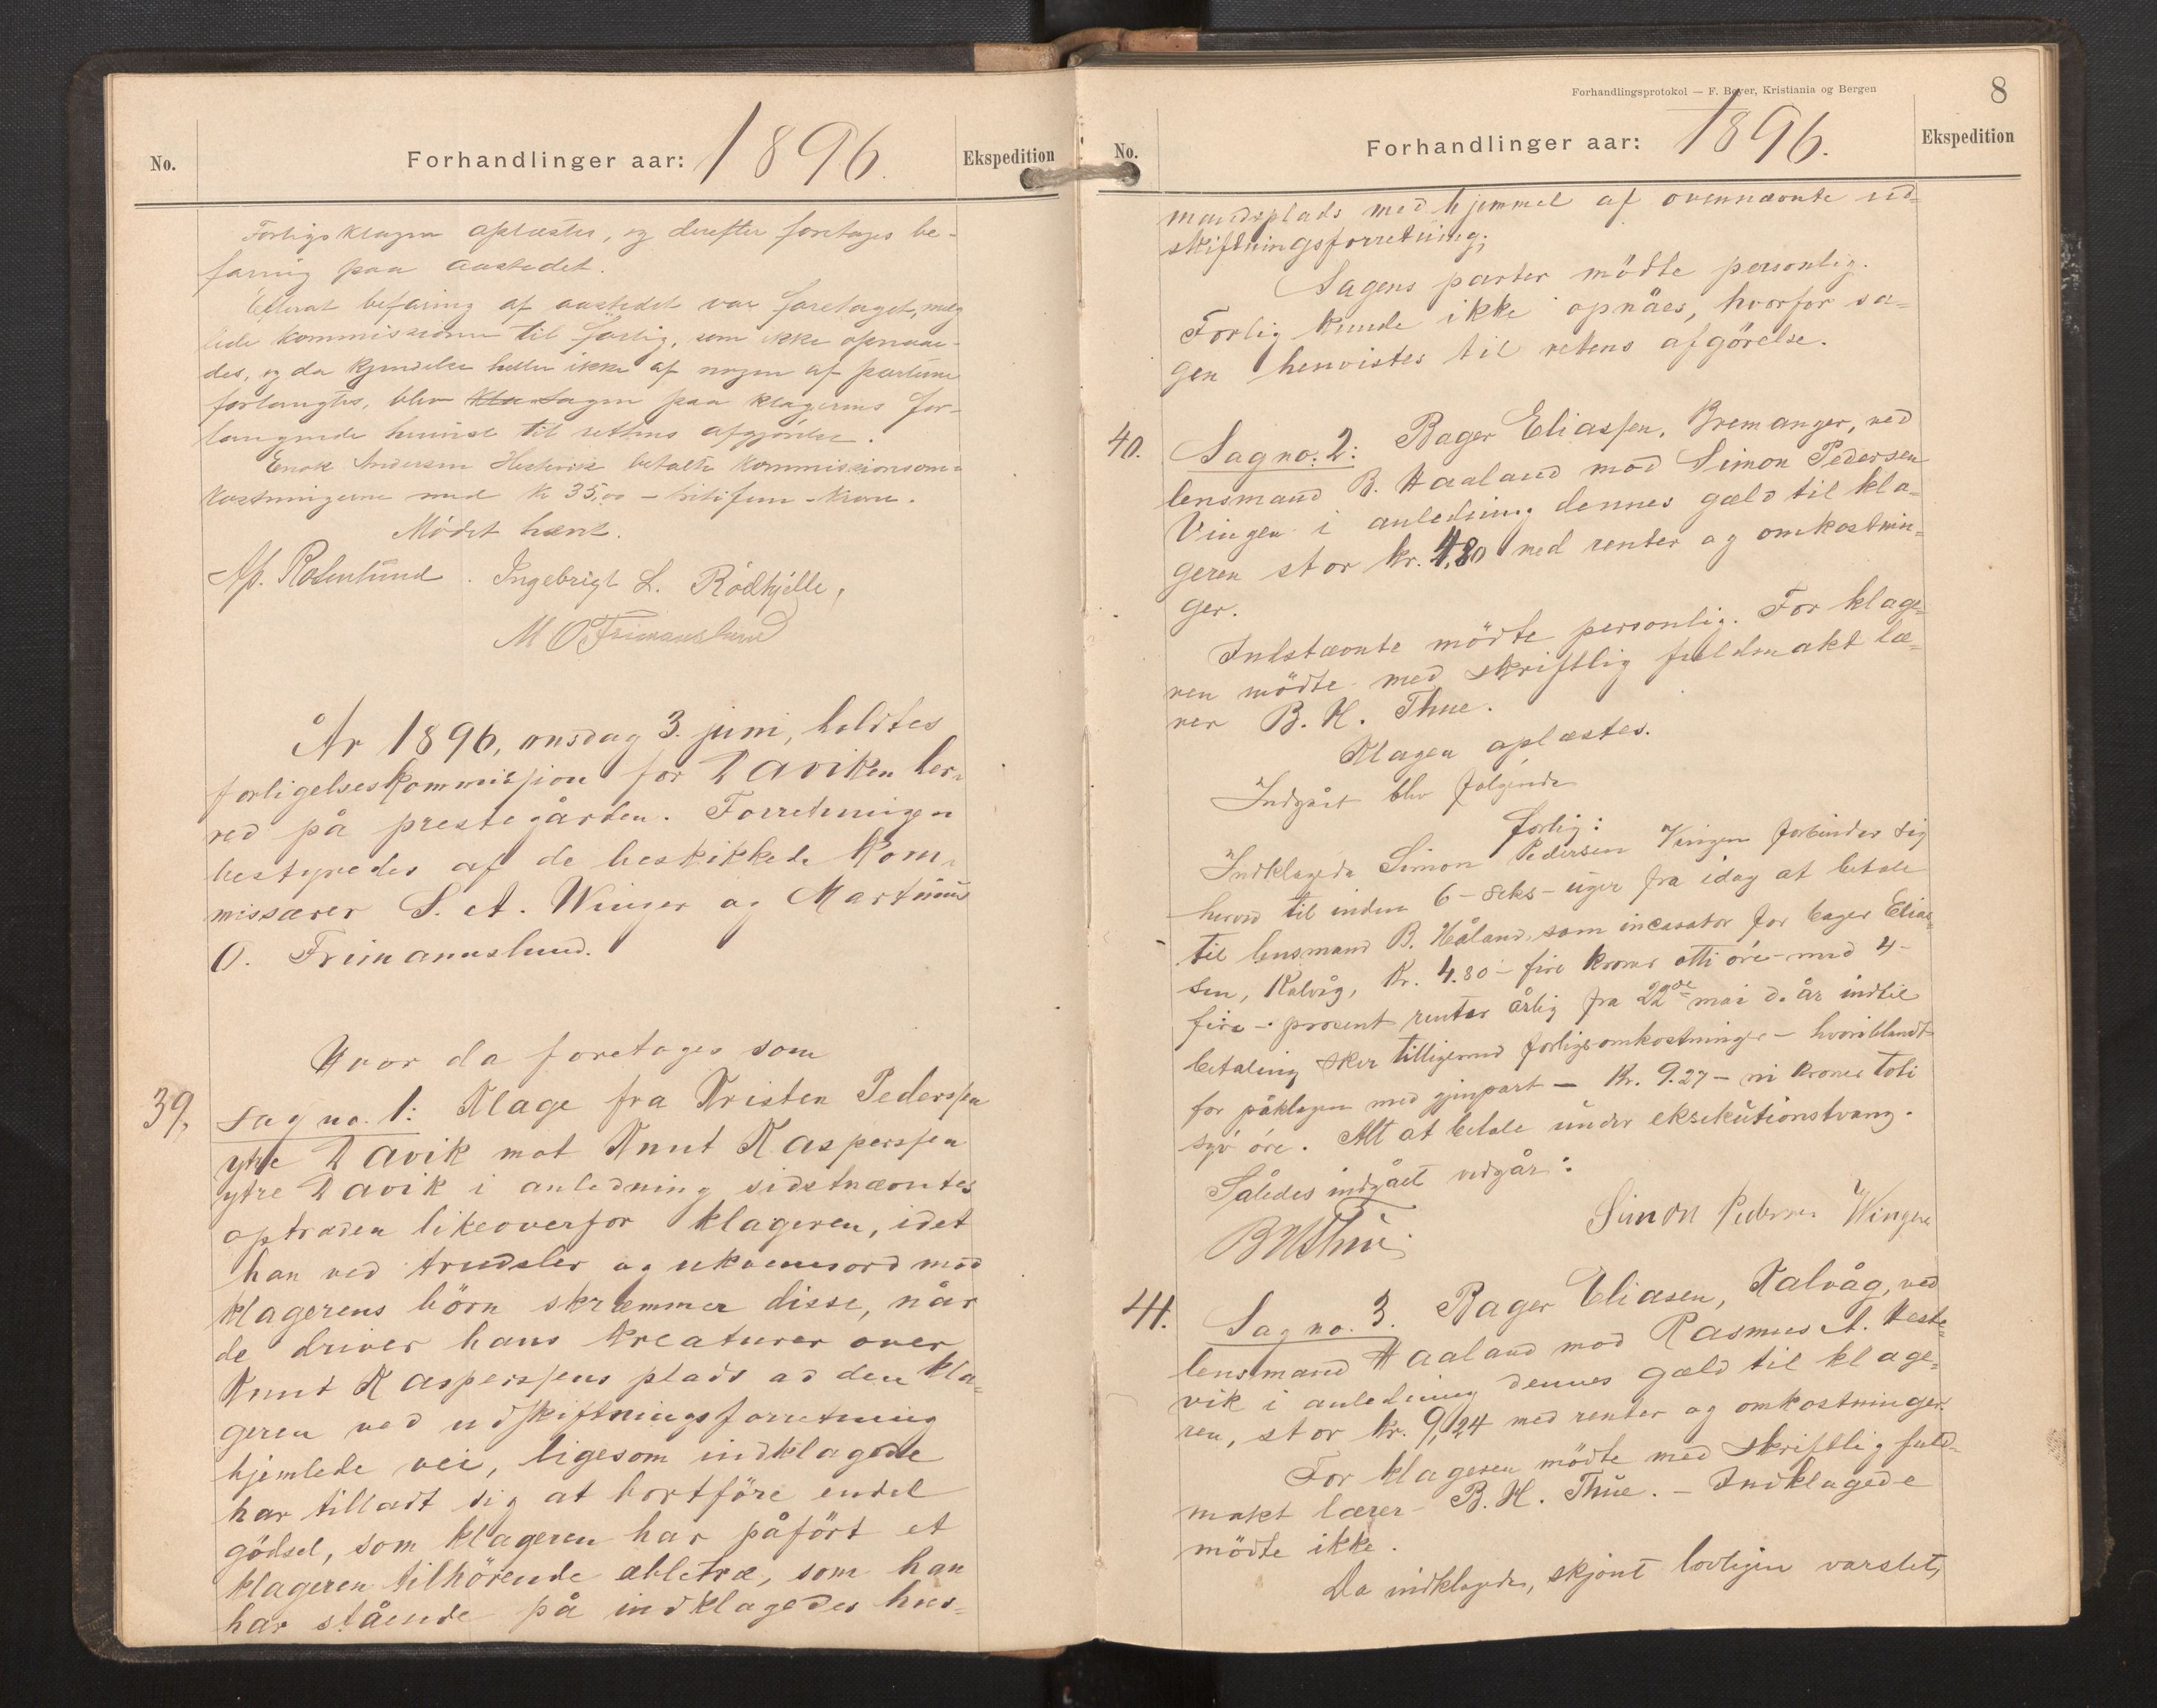 No.
Forhandlinger aar: 1896.
Ekspedition
Forligsklagen oplæstes, og derefter foretages be-
faring paa aastedet.
Efterat befaring af aastedet var foretaget, mæg
lede kommissionen til forlig, som ikke opnaae-
des, og da kjendelse heller ikke af nogen af parterne
forlangtes, blev Kla Sagen paa klagerens for-
langende henvist til rettens afgjørelse.
Enok Andersen Hestevik betalte kommissionsom-
kostningerne med Kr 35,00 – tritifem – kroner.
Mödet hævt.
Ap. Rosenlund. Ingebrigt L. Rödhjille,
M O Friemannslund
År 1896, onsdag 3. juni, holdtes
forligelseskommissjion for Daviken her-
red på prestegården. Forretningen
bestyredes af de beskikkede kom-
missærer S. A. Winger og Martinus
O. Friemannslund.
Hvor da foretoges som
39. sag no. 1: Klage fra Kristen Pederssen
ytre Davik mot Knut Kasperssen
ytre Davik i anledning sidstnævntes
optræden likeoverfor klageren, idet
han ved trudsler og ukvemsord mod
klagerens börn skræmmer disse, når
de driver hans kreaturer over
Knut Kasperssens plads ad den kla-
geren ved udskiftningsforretning
hjemlede vei, ligesom indklagede
har tilladt sig at bortföre endel
gödsel, som klageren har påfört et
klageren tilhörende æbletræ, som han
har stående på indklagedes hus-
Forhandlingsprotokol — F. Beyer, Kristiania og Bergen
8
No.
Forhandlinger aar: 1896.
Ekspedition
mandsplads med hjemmel af ovennævnte ud-
skiftningsforretning;
Sagens parter mödte personlig.
Forlig kunde ikke opnåes, hvorfor sa-
gen henvistes til retens afgörelse.
40. Sag no. 2: Bager Eliassen, Bremanger, ved
lensmand B. Haaland mod Simon Pedersen
Vingen i anledning dennes gæld til kla-
geren stor kr. 4,80 med renter og omkostnin-
ger.
Indstævnte mödte personlig. For klage-
ren mödte med skriftlig fuldmakt læ-
rer B. H. Thue.
Klagen oplæstes.
Indgået blev følgende
forlig:
Indklagede Simon Pedersen Vingen forbinder sig
herved til inden 6 – seks – uger fra idag at betale
til lensmand B. Håland, som incasator for bager Elias-
sen, Kalvåg, Kr. 4.80 – fire kroner otti øre – med 4 –
fire – prosent renter årlig fra 22de mai d. år indtil
betaling sker tilligemed forligsomkostninger – hvoriblandt
for påklagen med gjenpart – Kr. 9.27 – ni kroner toti
syv øre. Alt at betale under eksekutionstvang.
Således indgået vedgår:
B H Thue.
Simon Pedersen Wingen
41. Sag no. 3. Bager Eliasen, Kalvåg, ved
lensmand Haaland mod Rasmus A. Heste-
vik i anledning dennes gæld til klage-
ren, stor kr. 9,24 med renter og omkostninger.
For klageren mödte med skriftlig fuld-
makt lærer B. H. Thue. – Indklagede
mödte ikke.
Da indklagede, skjønt lovligen varslet,